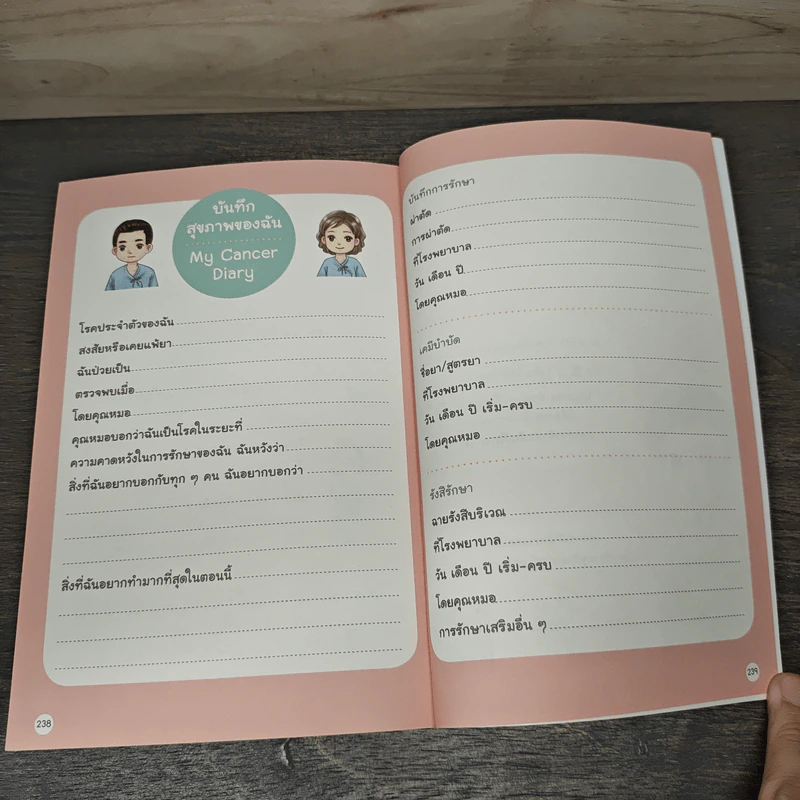 บันทึก
สุขภาพของฉัน
My Cancer
Diary
โรคประจำตัวของฉัน
สงสัยหรือเคยแพ้ยา
ฉันป่วยเป็น
ตรวจพบเมื่อ
โดยคุณหมอ
คุณหมอบอกว่าฉันเป็นโรคในระยะที่
ความคาดหวังในการรักษาของฉัน ฉันหวังว่า
สิ่งที่ฉันอยากบอกกับทุก ๆ คน ฉันอยากบอกว่า
สิ่งที่ฉันอยากทำมากที่สุดในตอนนี้
238
บันทึกการรักษา
ผ่าตัด
การผ่าตัด
ที่โรงพยาบาล
วัน เดือน ปี
โดยคุณหมอ
เคมีบำบัด
ชื่อยา/สูตรยา
ที่โรงพยาบาล
วัน เดือน ปี เริ่ม-ครบ
โดยคุณหมอ
รังสีรักษา
ฉายรังสีบริเวณ
ที่โรงพยาบาล
วัน เดือน ปี เริ่ม-ครบ
โดยคุณหมอ
การรักษาเสริมอื่น ๆ
239